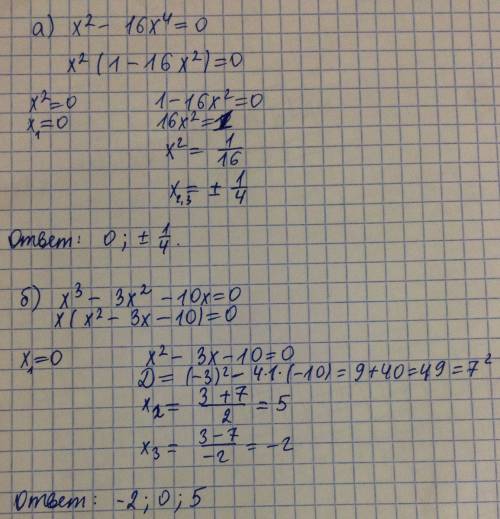 а) x² - 16x⁴ = 0
x² (1 - 16x²) = 0
x² = 0    1 - 16x² = 0
x₁ = 0    16x² = 1
x² = 1/16
x₂,₃ = ± 1/4
Ответ: 0; ± 1/4.
б) x³ - 3x² - 10x = 0
x (x² - 3x - 10) = 0
x₁ = 0    x² - 3x - 10 = 0
D = (-3)² - 4·1·(-10) = 9 + 40 = 49 = 7²
x₂ = (3 + 7)/2 = 5
x₃ = (3 - 7)/-2 = -2
Ответ: -2; 0; 5